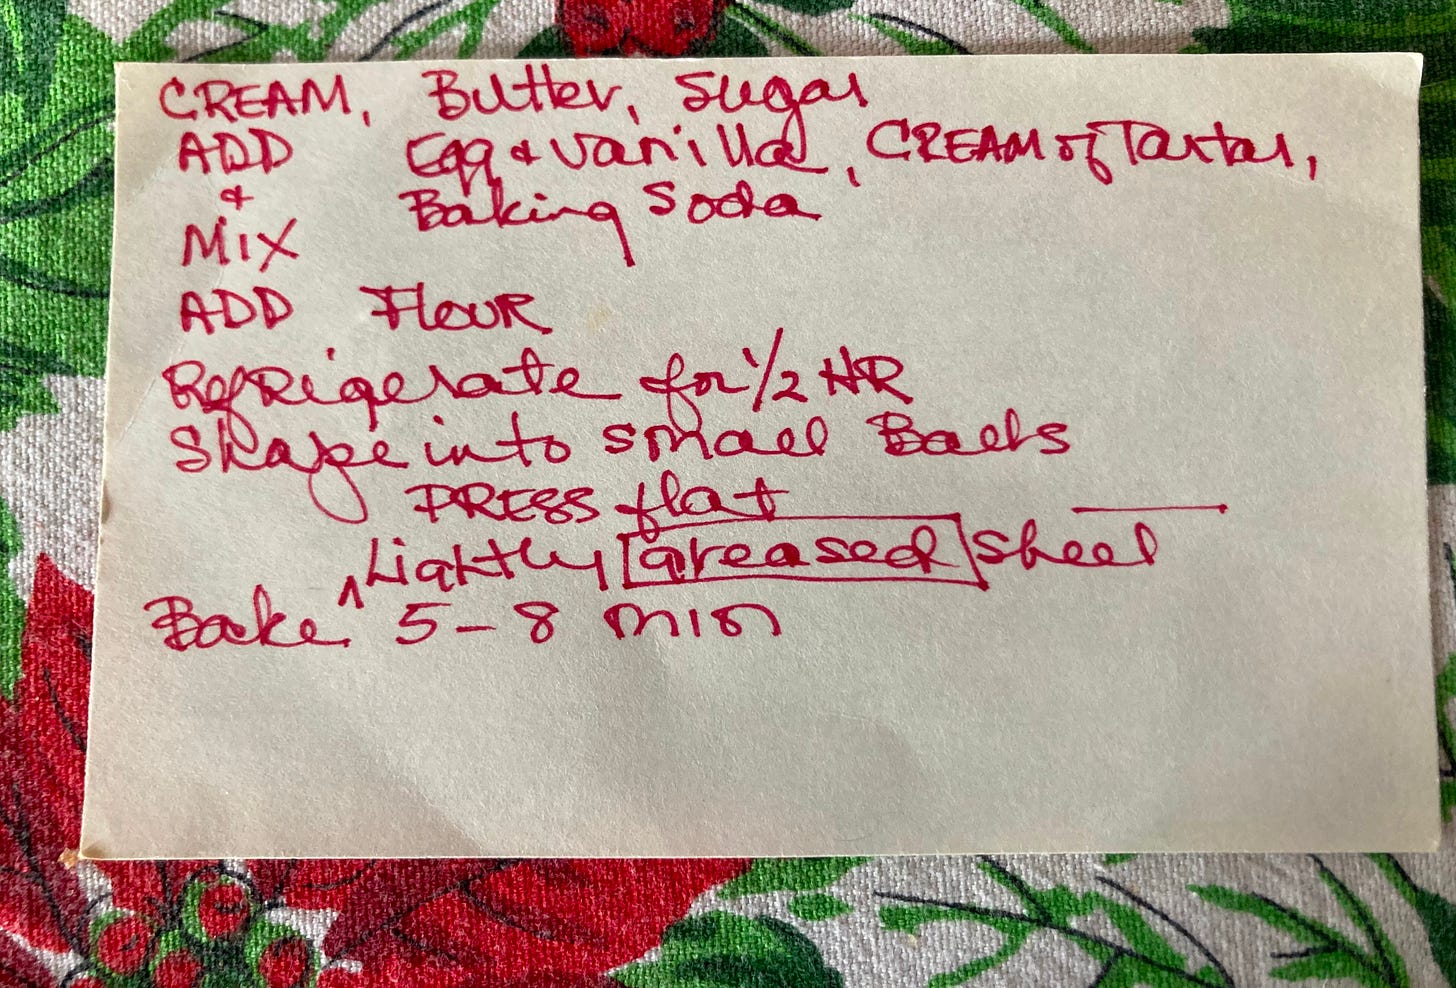 CREAM, Butter, Sugar
ADD Egg & Vanilla, CREAM of Tartar,
& Baking Soda
MIX
ADD FLOUR
Refrigerate for 1/2 HR
Shape into small Balls
PRESS flat
^Lightly greased sheet
Bake 5-8 min